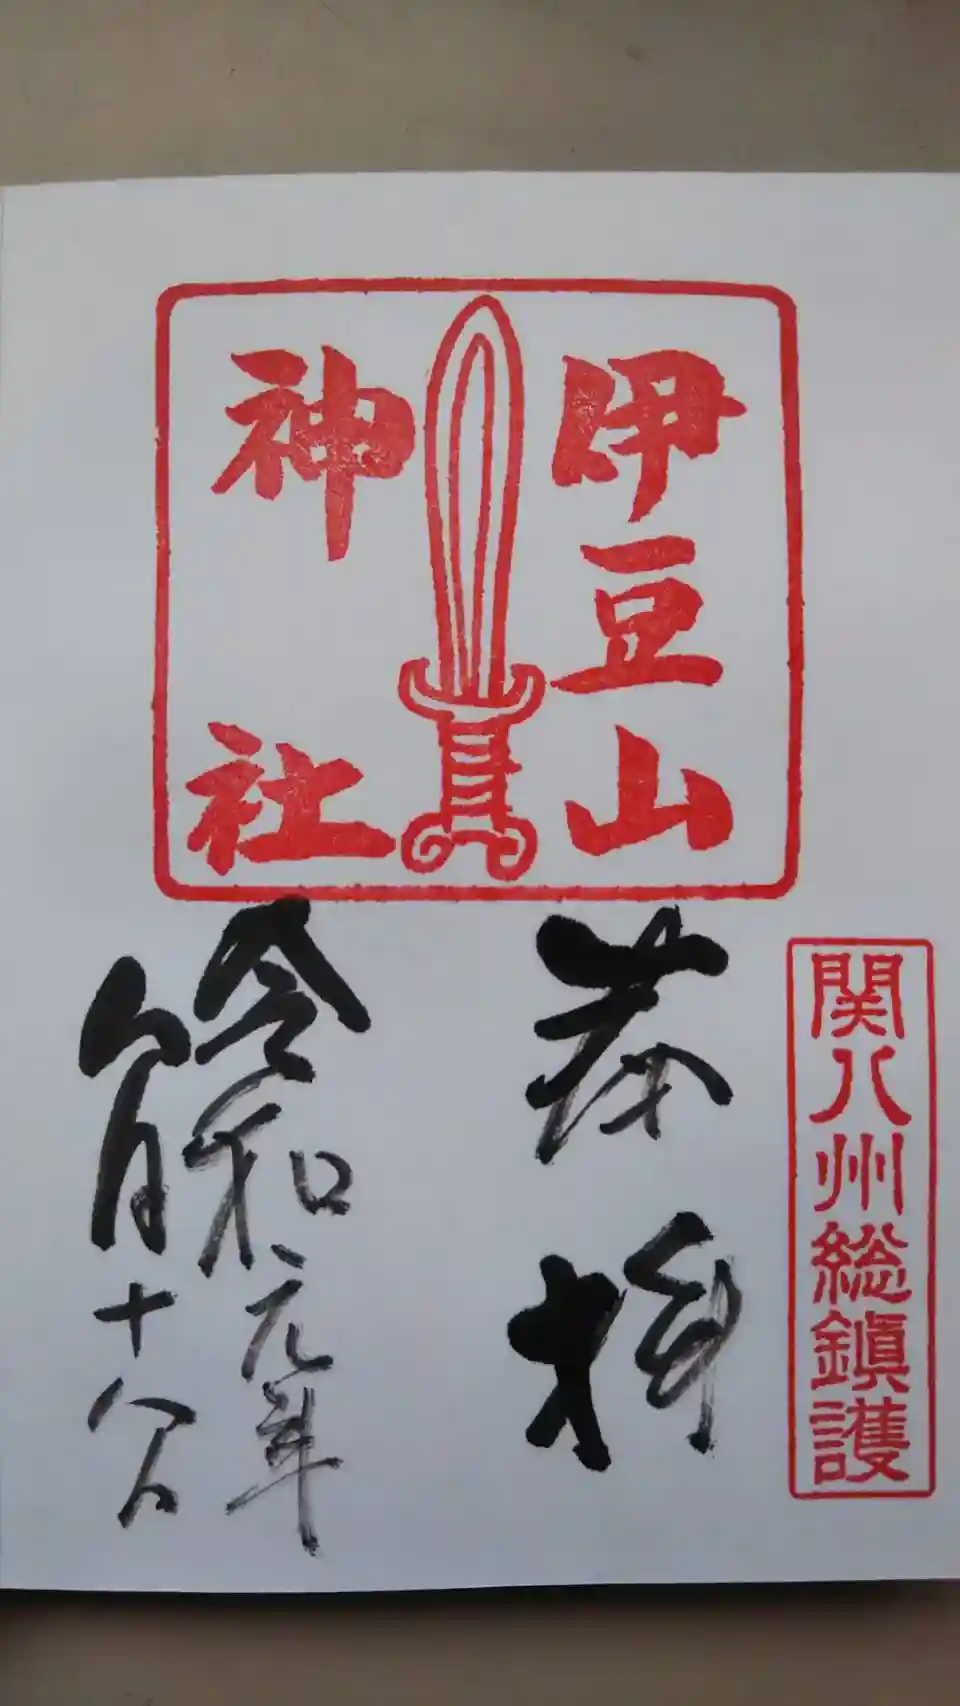 関八州総鎮護
伊豆山
神社
奉拝
令和元年
八月十八日